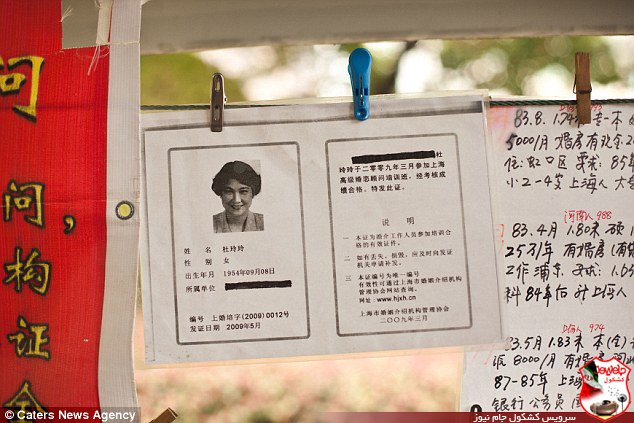 问
问，
构
证
姓 名 杜玲玲
性 别 女
出生年月 1954年09月08日
所属单位
编号 上婚培字(2009)0012号
发证日期 2009年5月
杜
玲玲于二零零九年三月参加上海
高级婚恋顾问培训班，经考核成
绩合格。特发此证。
说 明
一 本证为婚介工作人员参加培训合
格的有效证件。
二 如有丢失、损毁，应及时向发证
机关申请补发。
三 本证编号为唯一编号
有效性可通过上海市婚姻介绍机构
管理协会网站查询。
网址：www.hjxh.cn
上海市婚姻介绍机构管理协会
二〇〇九年三月
83.8. 1.74米 本
5000/月 婚房有
位:虹口区 要求: 85年
小2-4岁 上海人
河南人 988
83.4月 1.80米 硕
25万/年 有婚房
工作浦东
84年后
上海人 974
83.5月 1.83米 本
8000/月 有婚房
87-85年
银行 公务员
© Caters News Agency
سرویس کشکول جام نیوز
کشکول